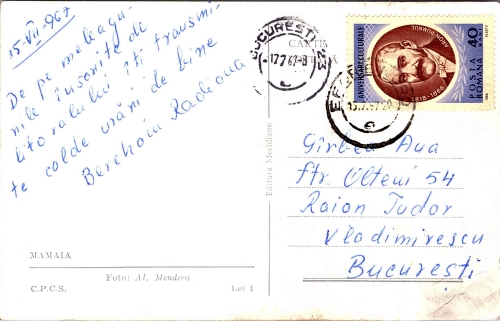 15.VII.1967
De pe meleagu-
rile însorite di
litoralului îți transmi-
te calde urări de bine
Berehoiu Radioara
MAMAIA
Foto: Al. Mendrea
C.P.C.S.
Lei 1
Editura Meridiane
CARTE
BUCUREȘTI 23
17.7.67-8
ANIVERSĂRI CULTURALE
1818-1866
40
BANI
POȘTA
ROMÂNĂ
Gîrbea Ana
Str. Olteni 54
Raion Tudor
Vladimirescu
București